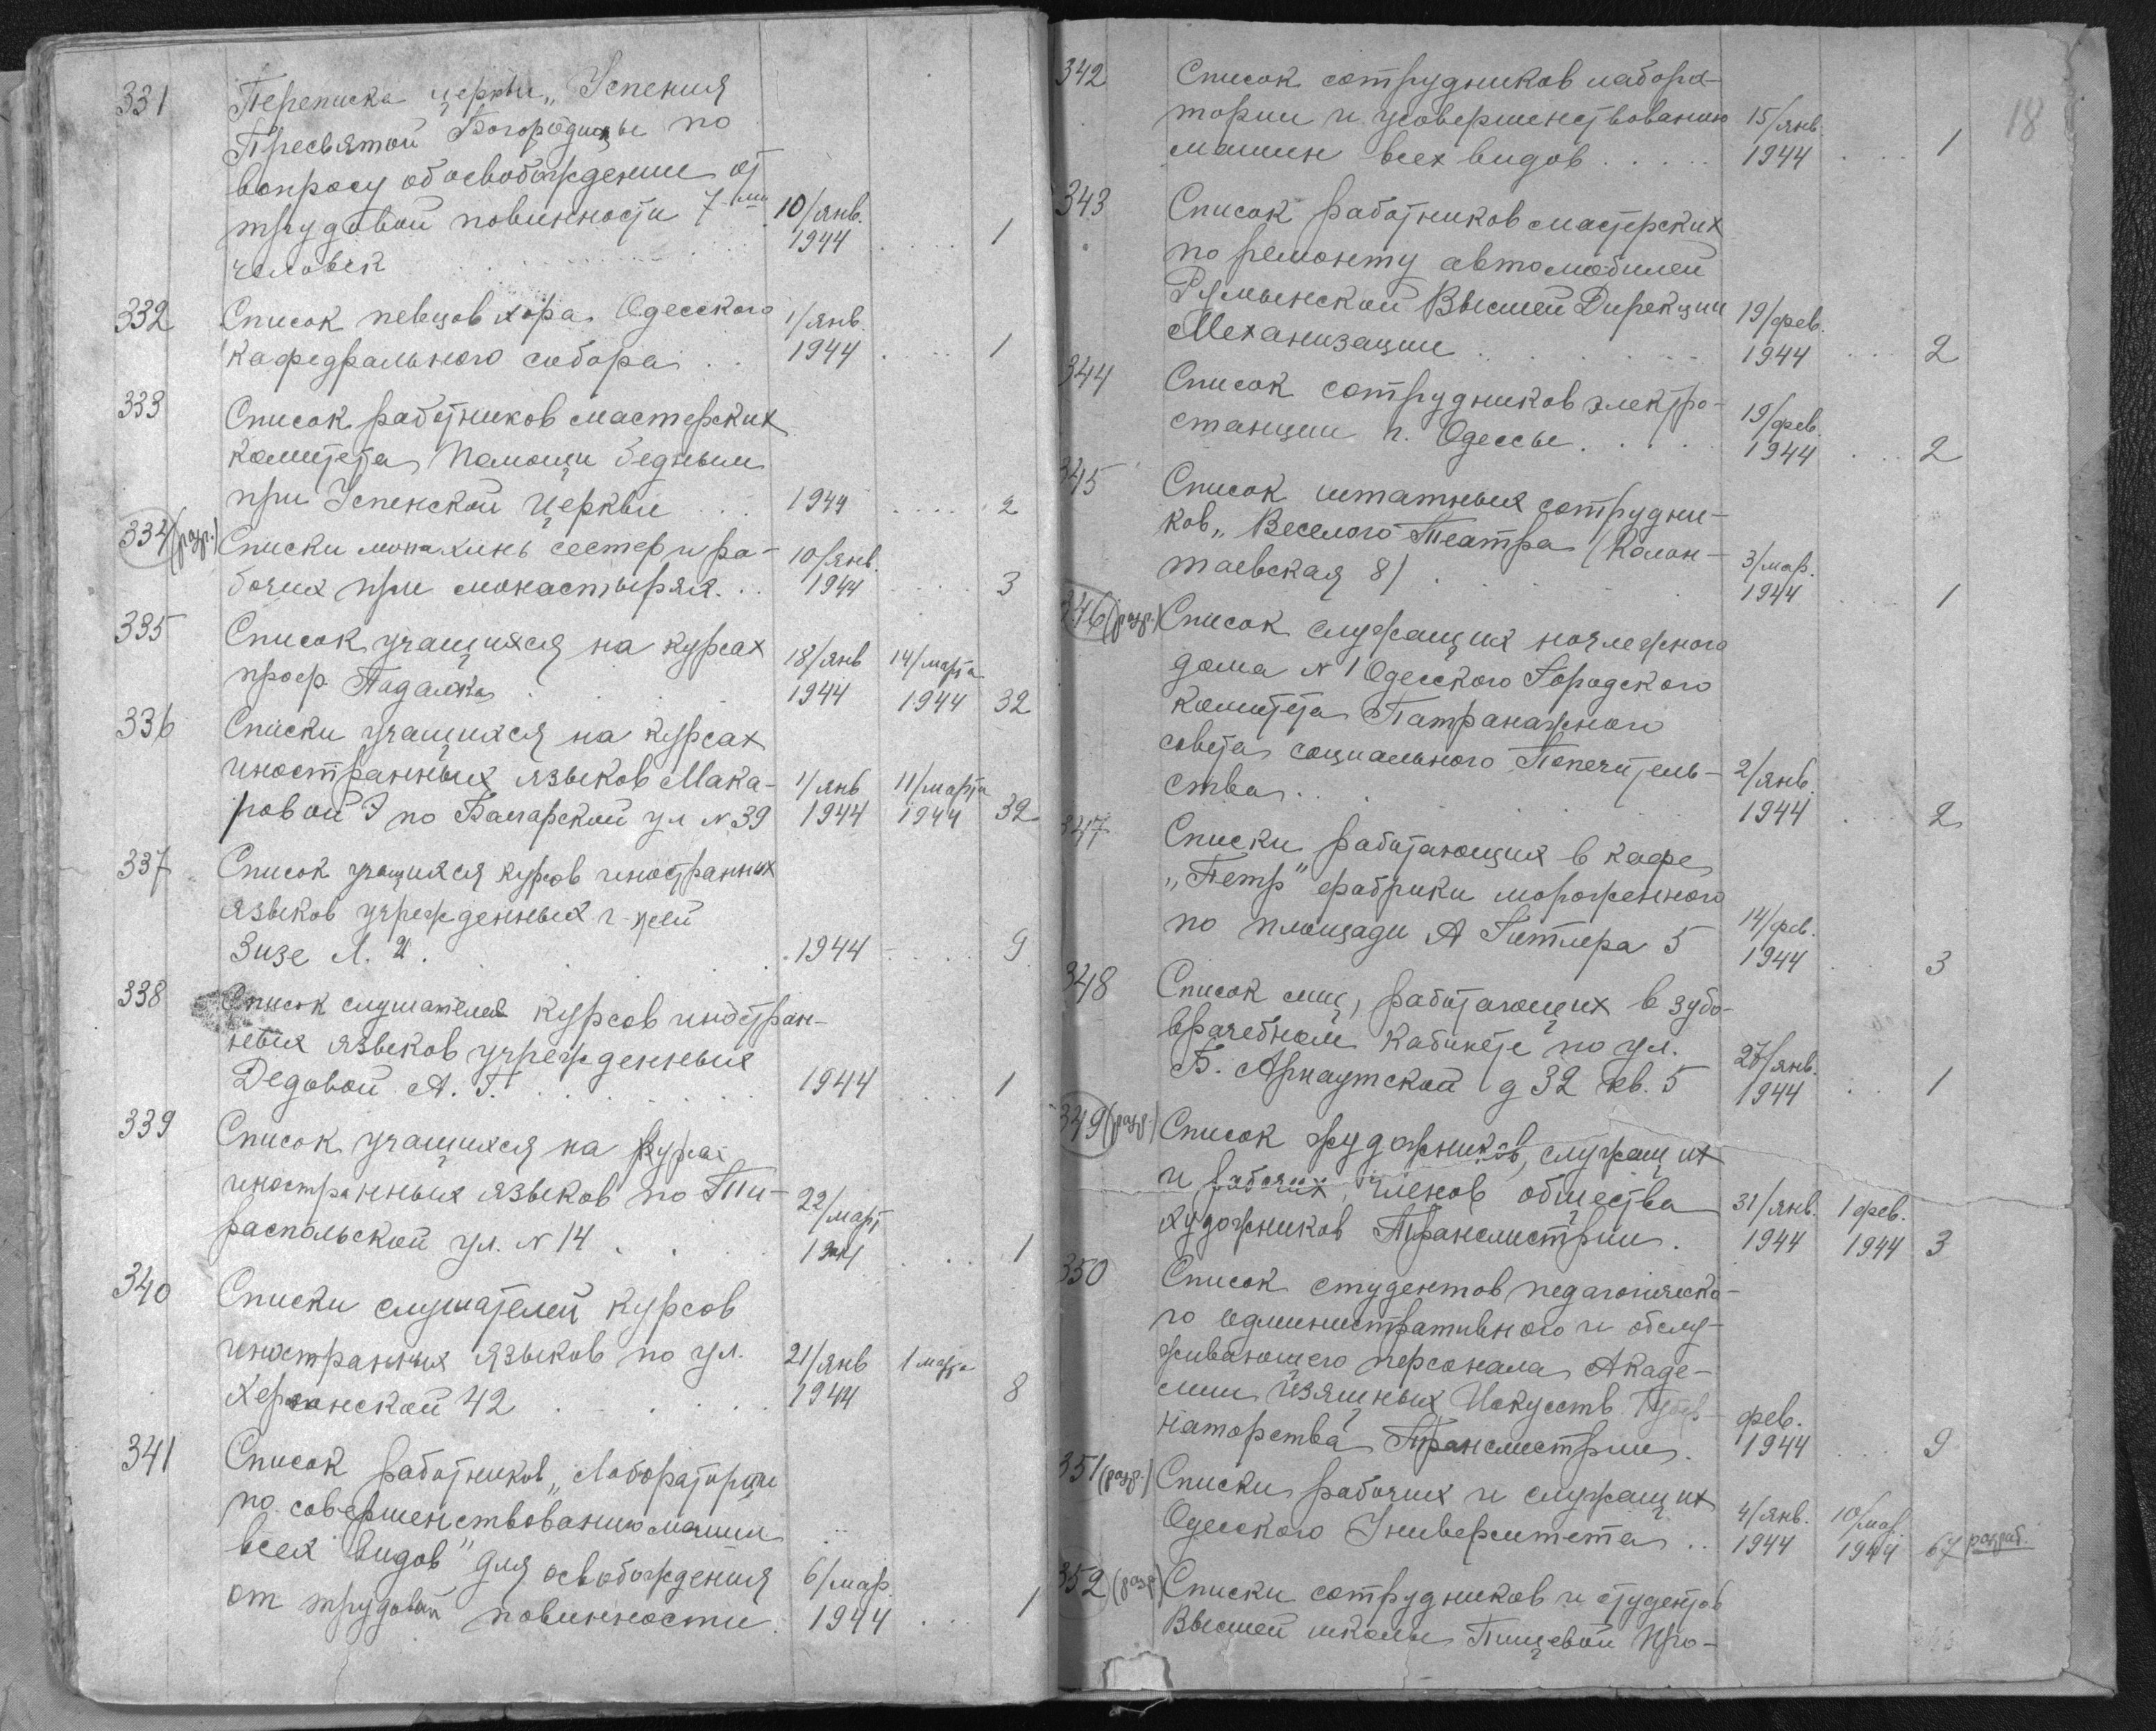 331 Переписка церкви „Успения
Пресвятой Богородицы по
вопросу об освобождении от
трудовой повинности 7-ми 10/янв.
человек . . . . . 1944 . . . . 1
332 Список певцов хора Одесского 1/янв.
кафедрального собора . . 1944 . . . . 1
333 Список работников мастерских
комитета Помощи бедным
при Успенской Церкви . . . 1944 . . . . . 2
334 (разр.) Списки монахинь сестер и ра- 10/янв.
бочих при монастырях. . . 1944 . . . . 3
335 Список учащихся на курсах 18/янв 14/марта
проф. Падалка . . . . 1944 1944 32
336 Списки учащихся на курсах
иностранных языков Мака- 1/янв 11/марта
ровой Э по Болгарской ул № 39 1944 1944 32
337 Список учащихся курсов иностранных
языков учрежденных г-жей
Зизе Л. И. . . . . 1944 . . . . 9
338 Список слушателей курсов иностран-
ных языков учрежденных
Дедовой А. Г. . . . . . 1944 . . . 1
339 Список учащихся на курсах
иностранных языков по Ти- 22/март
распольской ул. № 14 . . . 1944 . . . 1
340 Списки слушателей курсов
иностранных языков по ул. 21/янв 1 марта
Херсонской 42 . . . . . 1944 8
341 Список работников „Лаборатории
по совершенствованию машин
всех видов" для освобождения 6/мар.
от трудовой повинности. 1944 . . . 1
18
342 Список сотрудников лабора-
тории и усовершенствованию 15/янв.
машин всех видов . . . . . 1944 . . . . 1
343 Список работников мастерских
по ремонту автомобилей
Румынской Высшей Дирекции 19/фев.
Механизации . . . . . . 1944 . . . 2
344 Список сотрудников электро- 19/фев.
станции г. Одессы . . . . 1944 . . . 2
345 Список штатных сотрудни-
ков „Веселого Театра (Колон- 3/мар.
таевская 8) . . . . 1944 . . . 1
346 (разр.) Список служащих ночлежного
дома № 1 Одесского Городского
Комитета Патранажного
совета социального Попечитель- 2/янв.
ства . . . . . 1944 . . . 2
347 Списки работающих в кафе
„Петр" фабрики мороженного 14/фев.
по площади А Гитлера 5 1944 . . . 3
348 Список лиц, работающих в зубо-
врачебном кабинете по ул. 27/янв.
Б. Арнаутской д 32 кв. 5 1944 . . 1
349 (разр.) Список художников, служащих
и рабочих, членов общества 31/янв. 1 фев.
художников Транснистрии. 1944 1944 3
350 Список студентов педагогическо-
го административного и обслу-
живающего персонала Акаде-
мии Изящных Искусств Губер- фев.
наторства Транснистрии. 1944 . . . 9
351 (разр.) Списки рабочих и служащих 4/янв. 10/мар.
Одесского Университета . . 1944 1944 67 разраб.
352 (разр) Списки сотрудников и студентов
Высшей школы Пищевой Про-